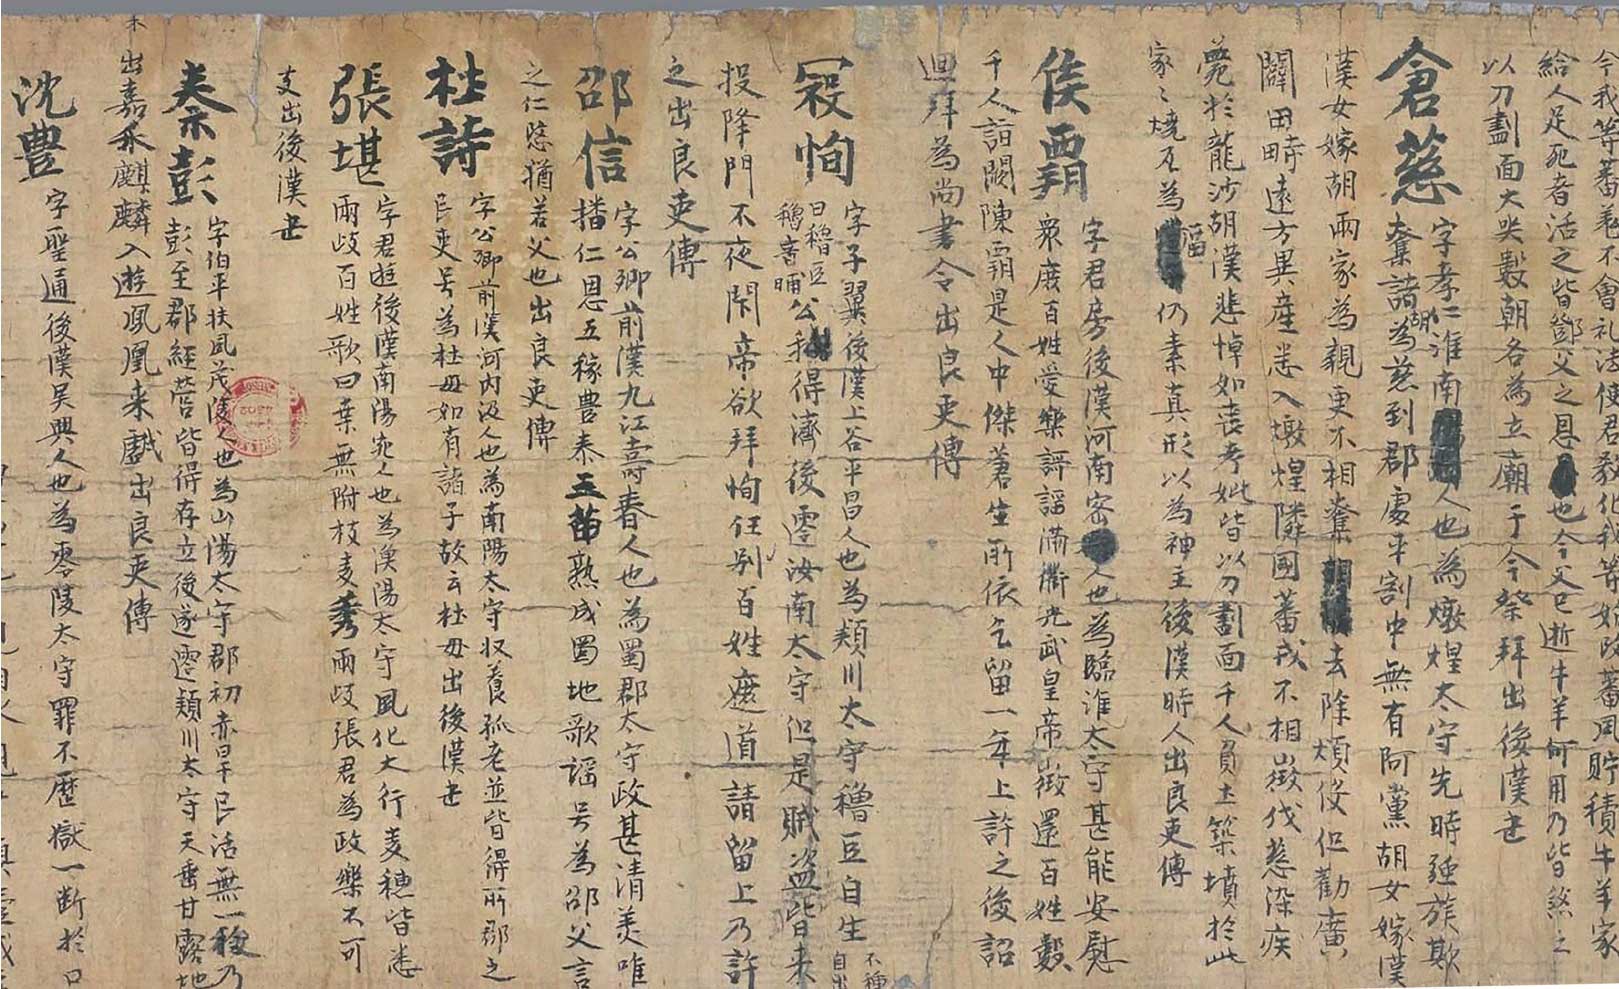 今我等蕃卷不會礼法使君教化我等始改蕃風貯積牛羊家
給人足死者活之皆鄧父之恩也今父已逝牛羊何用乃皆煞之
以刀劃面大哭數朝各為立廟于今祭拜出後漢史
倉慈
字孝仁淮南人也為燉煌太守先時強族欺
奪諸胡為慈到郡處平割中無有阿黨胡女嫁漢
漢女嫁胡兩家為親更不相奪去除煩役但勸廣
闢田疇遠方異産悉入燉煌隣國蕃戎不相徵伐慈染疾
薨於龍沙胡漢悲悼如喪考妣皆以刀劃面千人負土築墳於此
家〻燒瓦為仍素真形以為神主後漢時人出良吏傳
侯霸
字君房後漢河南密人也為臨淮太守甚能安慰
衆庶百姓受樂謌謡滿衢光武皇帝徵還百姓數
千人詣闕陳霸是人中傑蒼生所依乞留一年上許之後詔
迴拜為尚書令出良吏傳
寇恂
字子翼後漢上谷平昌人也為頴川太守穭豆自生
不種自出
曰穭豆
穭音晡
公私得濟後遷汝南太守但是賊盗皆来
投降門不夜閇帝欲拜恂任別百姓遮道請留上乃許
之出良吏傳
邵信
字公卿前漢九江壽春人也為蜀郡太守政甚清美唯
播仁恩五稼豊泰三苗熟成蜀地歌謡号為邵父言
之仁慈猶若父也出良吏傳
杜詩
字公卿前漢河内汲人也為南陽太守収養孤老並皆得所郡之
民吏号為杜母如有諸子故云杜母出後漢史
張堪
字君遊後漢南陽宛人也為漁陽太守風化大行麦穗皆悉
兩歧百姓歌曰桒無附枝麦秀兩歧張君為政樂不可
支出後漢史
秦彭
字伯平扶風茂陵人也為山陽太守郡初赤旱民活無一役乃
彭至郡經營皆得存立後遂遷頴川太守天垂甘露地
出嘉禾麒麟入遊鳳凰来戱出良吏傳
沈豊
字聖通後漢吴興人也為零陵太守罪不歷獄一断於口